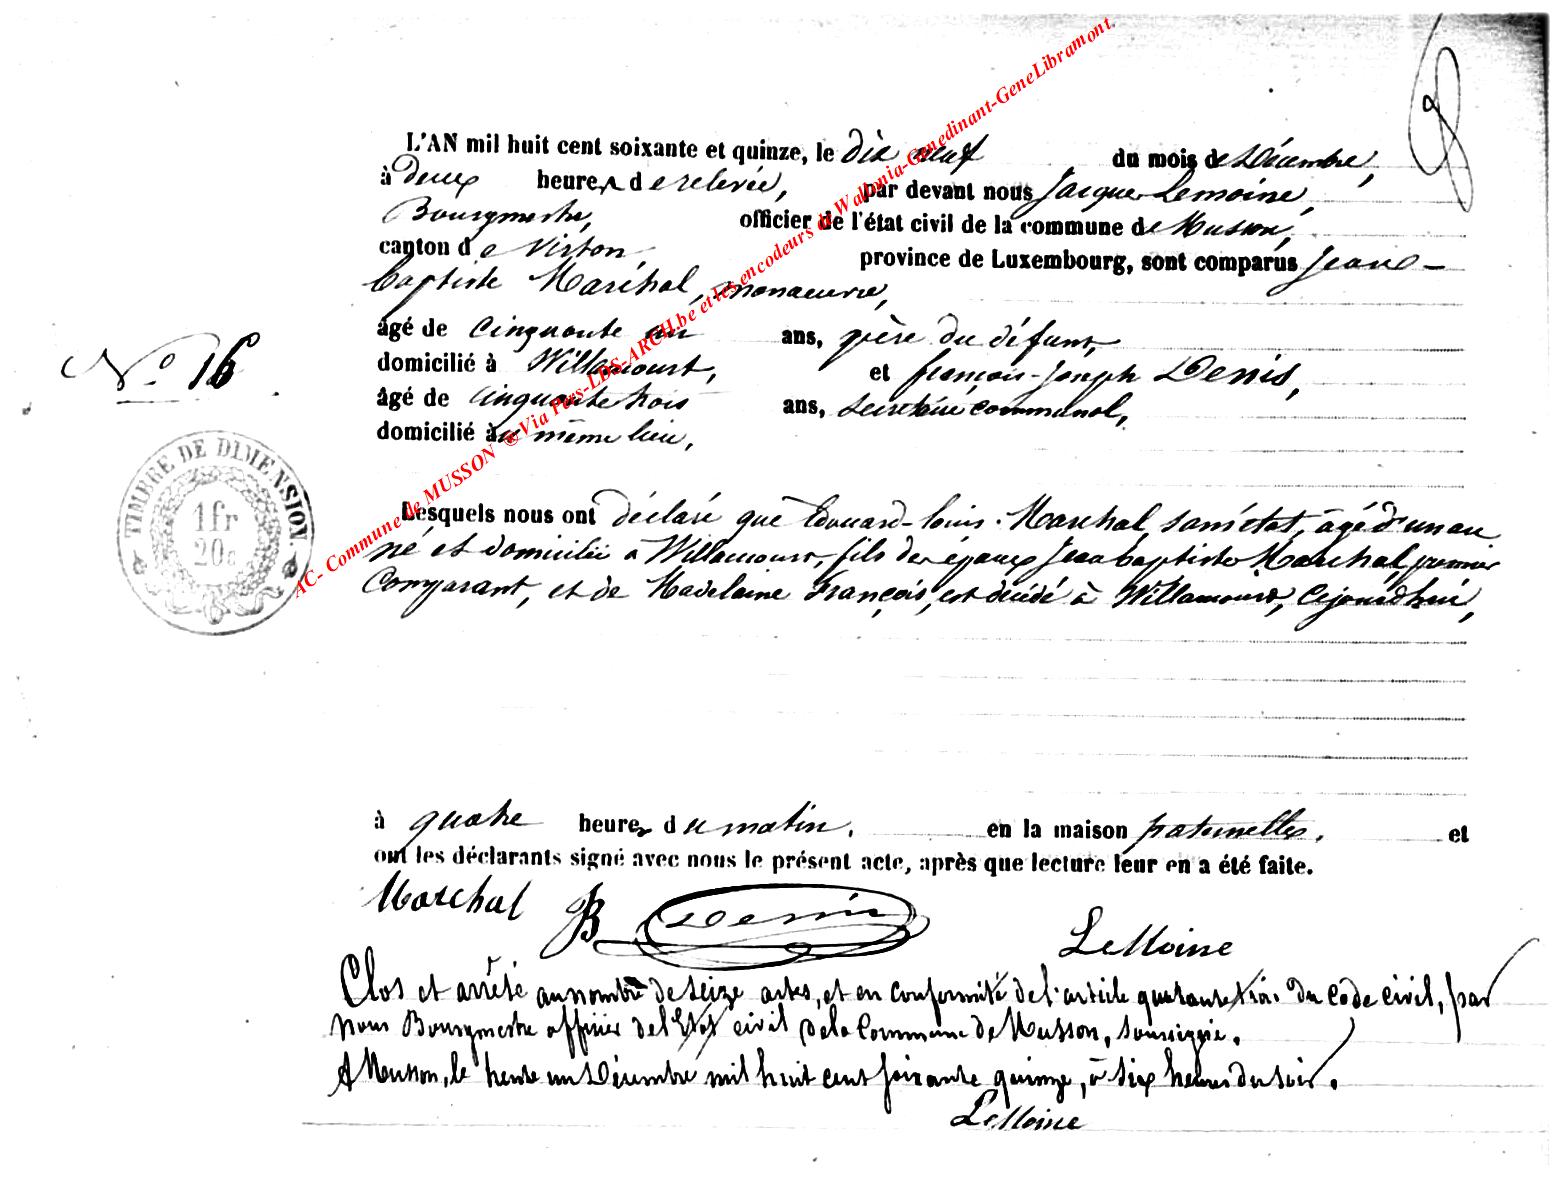 L'AN mil huit cent soixante et quinze, le dix neuf du mois de Décembre,
à deux heures de relevée, par devant nous Jacques Lemoine,
Bourgmestre, officier de l'état civil de la commune de Musson,
canton de Virton, province de Luxembourg, sont comparus Jean-
baptiste Maréchal, manoeuvre,
âgé de cinquante un ans, père du défunt,
domicilié à Willancourt, et françois-Joseph Denis,
âgé de cinquante trois ans, secrétaire communal,
domicilié au même lieu,
N° 16
TIMBRE DE DIMENSION
1 fr
20c
Lesquels nous ont déclaré que Edouard-louis Marchal, sans état, âgé d'un an
né et domicilié à Willancourt, fils des époux Jean baptiste Marchal, premier
Comparant, et de Madelaine François, est décédé à Willancourt, cejourdhui,
à quatre heures du matin, en la maison paternelle, et
ont les déclarants signé avec nous le présent acte, après que lecture leur en a été faite.
Marchal JB Denis LeMoine
Clos et arrêté au nombre de seize actes, et en conformité de l'article quarante trois du code civil, par
nous Bourgmestre officier de l'Etat civil de la Commune de Musson, soussigné.
A Musson, le trente un Décembre mil huit cent soixante quinze, à six heures du soir.
LeMoine
AC- Commune de MUSSON @Via Pers-LDS-ARCH.be et les encodeurs de Wallonia-Genedinant-GeneLibramont.